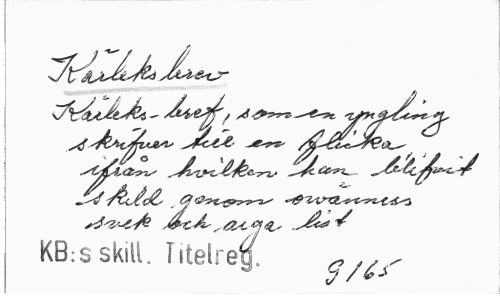 Kärleksbrev
Kärleks-bref, som en yngling
skrifver till en flicka
ifrån hvilken han blifvit
skild genom ovänners
svek och arga list
KB:s skill. Titelreg.
G 165